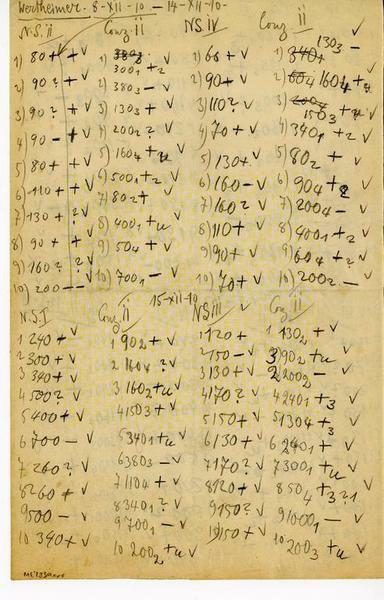 Wertheimer. 8-XII-10 – 14-XII-10-
N.S. II
1) 80 + + V
2) 90 ? + V
3) 90 ? + V
4) 90 - + V
5) 80 + + V
6) 110 + + V
7) 130 + ? V
8) 90 + + V
9) 160 ? ? V
10) 200 - -
Conz II
1)
300₁ + ₂
2) 380₃ - V
3) 130₃ + V
4) 200₂ ? V
5) 160₄ + u
6) 500₁ + ₂ V
7) 80₂ +
8) 400₁ + u V
9) 50₄ + V
10) 700₁ - V
NS IV
1) 60 + V
2) 90 + V
3) 110 ? V
4) 70 + V
5) 130 + V
6) 160 - V
7) 160 ? V
8) 110 + V
9) 90 + V
10) 70 + V
Conz II
1) 340₁ 130₃ - V
2) 60₄ 160₄ + u
3) 200₂ V
150₃ + u
4) 340₁ + ₂ V
5) 80₂ + V
6) 90₄ + ₂
7) 200₄ - V
8) 400₁ + ₂ V
9) 60₄ + ₂ V
10) 200₂ - V
15-XII-10
N.S. I
1 240 + V
2 300 + V
3 340 + V
4 500 ? V
5 400 + V
6 700 - V
7 260 ? V
8 260 + V
9 500 - V
10 390 + V
Conz II
1 90₂ + V
2 160₄ ? V
3 160₂ + u V
4 150₃ + V
5 340₁ + u
6 380₃ - V
7 110₄ + V
8 340₁ ? V
9 700₁ - V
10 200₂ + u V
NS III
1 120 + V
2 150 - V
3 130 + V
4 170 ? V
5 150 + V
6 130 + V
7 170 ? V
8 120 + V
9 150 ? V
10 150 + V
Conz II
1 130₂ + V
3 90₂ + u V
2 200₂ - V
4 240₁ + ₃ V
5 130₄ + ₃ V
6 240₁ + V
7 300₁ + u V
8 50₄ + ₃ ? 1
9 1000₁ - V
10 200₃ + u V